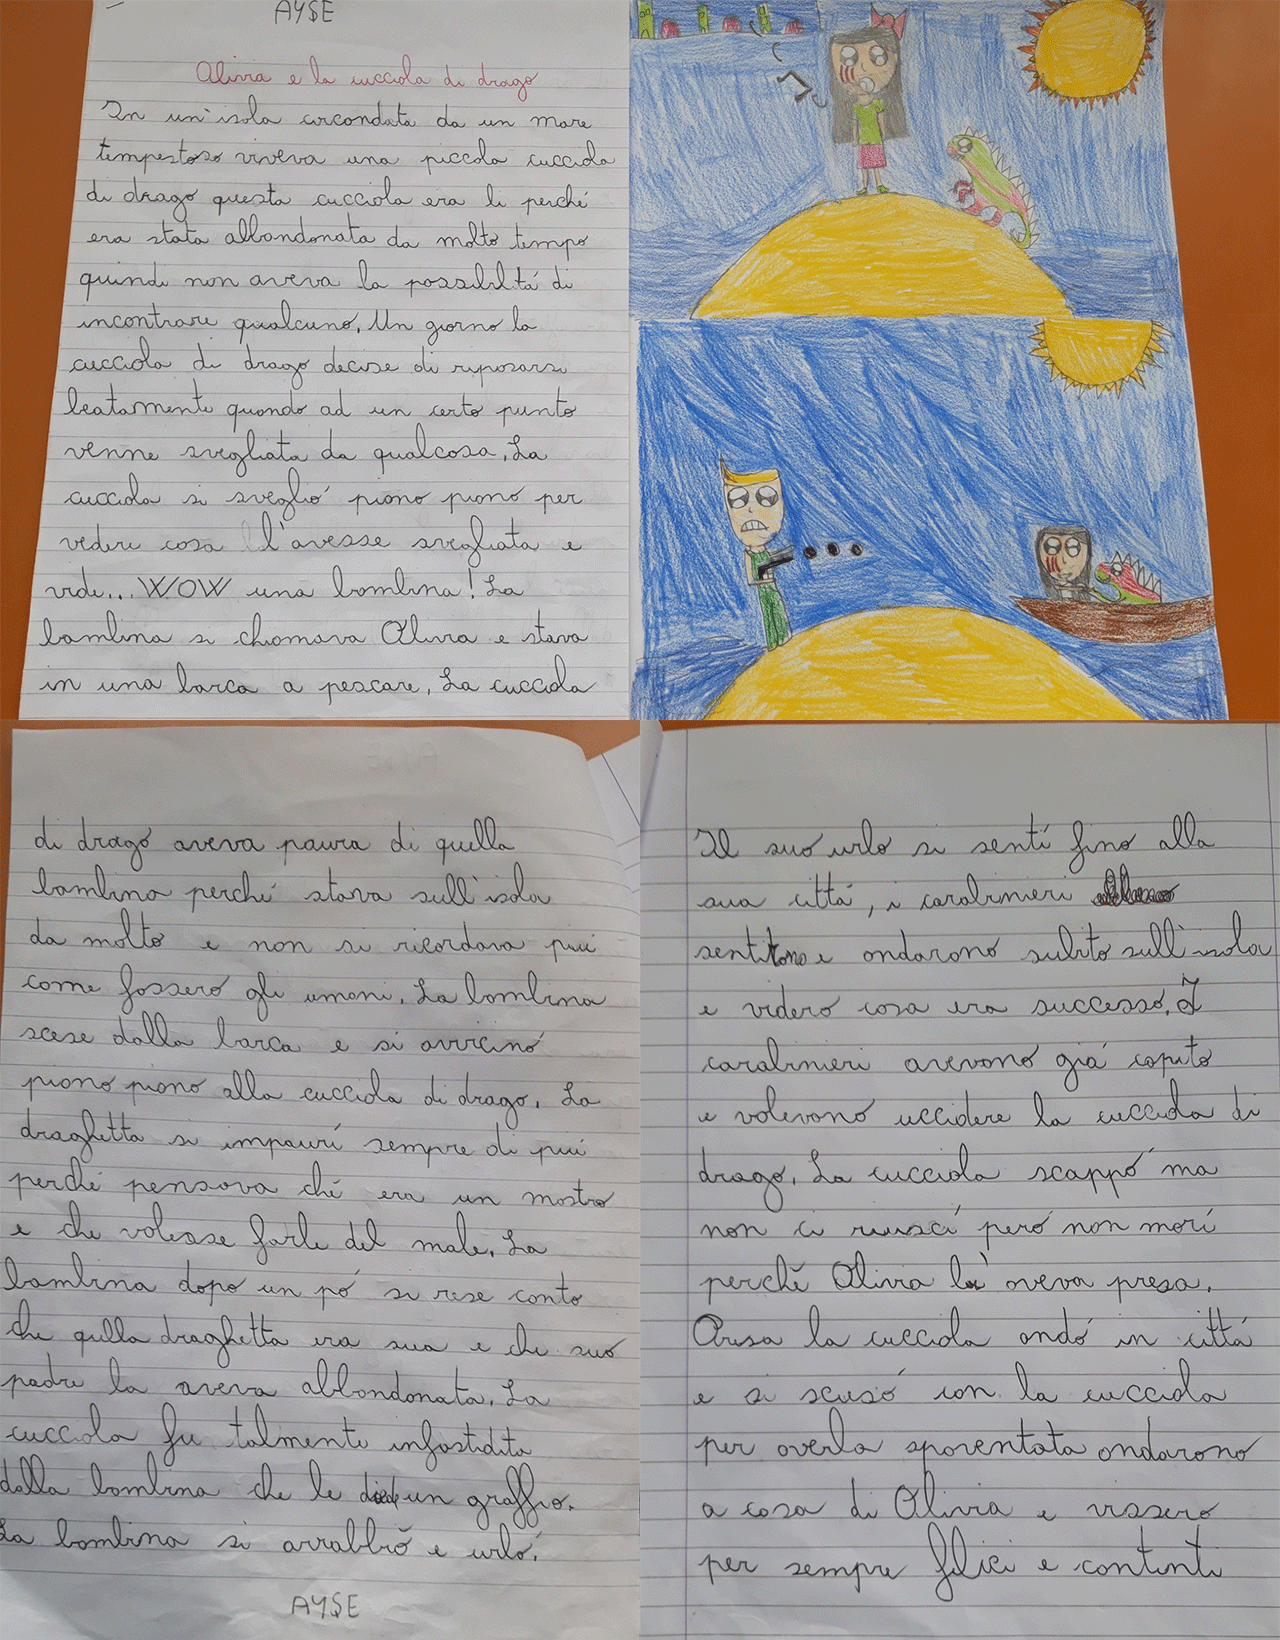 AYŞE
Olivia e la cucciola di drago
In un'isola circondata da un mare
tempestoso viveva una piccola cucciola
di drago questa cucciola era lì perché
era stata abbandonata da molto tempo
quindi non aveva la possibilitá di
incontrare qualcuno. Un giorno la
cucciola di drago decise di riposarsi
beatamente quando ad un certo punto
venne svegliata da qualcosa. La
cucciola si sveglió piano piano per
vedere cosa l'avesse svegliata e
vide... WOW una bambina! La
bambina si chiamava Olivia e stava
in una barca a pescare. La cucciola
di drago aveva paura di quella
bambina perché stava sull'isola
da molto e non si ricordava piú
come fossero gli umani. La bambina
scese dalla barca e si avvicinó
piano piano alla cucciola di drago. La
draghetta si impaurí sempre di piú
perché pensava ché era un mostro
e che volesse farle del male. La
bambina dopo un pó si rese conto
che qulla draghetta era sua e che suo
padre la aveva abbandonata. La
cucciola fu talmente infastidita
dalla bambina che le diede un graffio.
La bambina si arrabbió e urló.
AYŞE
Il suo urlo si sentí fino alla
sua cittá, i carabinieri
sentirono e andarono subito sull'isola
e videro cosa era successo. I
carabinieri avevano giá capito
e volevano uccidere la cucciola di
drago. La cucciola scappó ma
non ci riuscí peró non morí
perché Olivia la aveva presa.
Presa la cucciola andó in cittá
e si scusó con la cucciola
per averla spaventata andarono
a casa di Olivia e vissero
per sempre felici e contenti